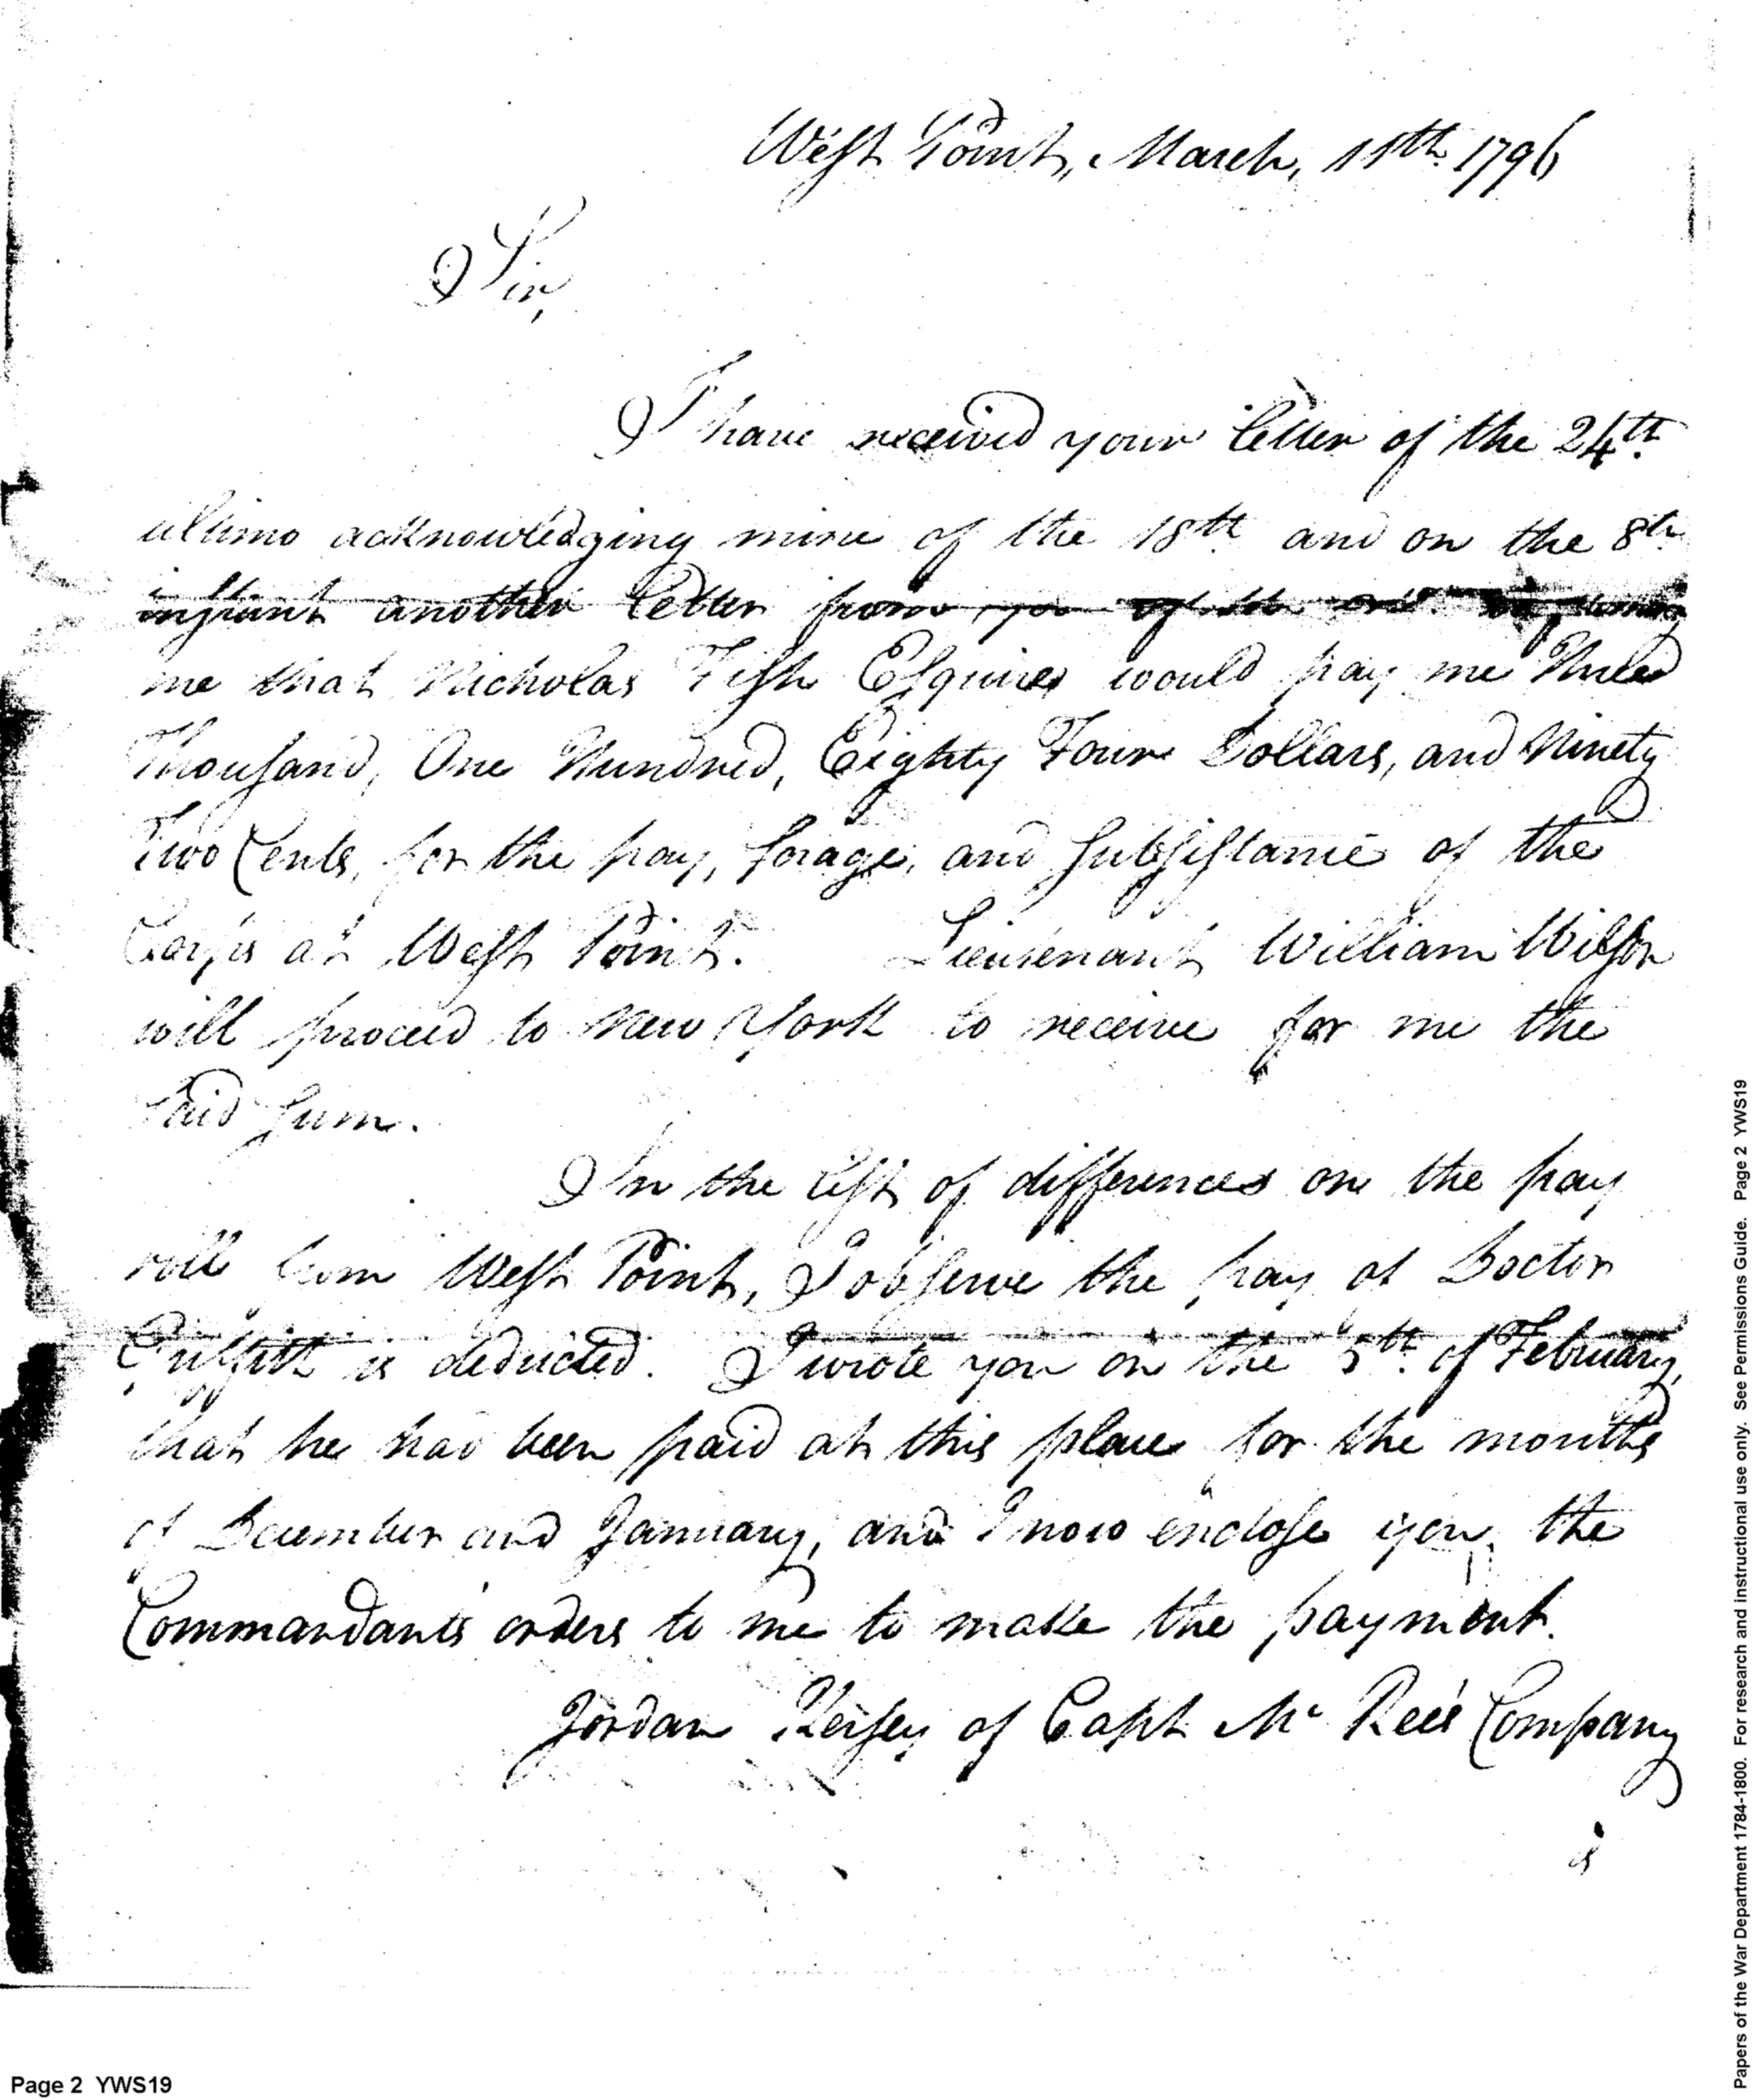 West Point, March, 11th 1796
Sir,
I have received your letter of the 24th
ultimo acknowledging mine of the 18th and on the 8th
instant another letter from you of the informing
me that Nicholas Fish Esquire would pay me Three
Thousand, One Hundred, Eighty Four Dollars, and Ninety
Two Cents, for the pay, forage, and Subsistance of the
Corps at West Point. Lieutenant William Wilson
will proceed to New York to receive for me the
said sum.
In the list of differences on the pay
roll from West Point, I observe the pay of Doctor
Griffith is deducted. I wrote you on the 5th of February,
that he had been paid at this place for the months
of December and January, and I now enclose you, the
Commandants orders to me to make the payment.
Jordan Kersey of Capt Mc Ree's Company
is
Page 2 YWS19
Papers of the War Department 1784-1800. For research and instructional use only. See Permissions Guide. Page 2 YWS19